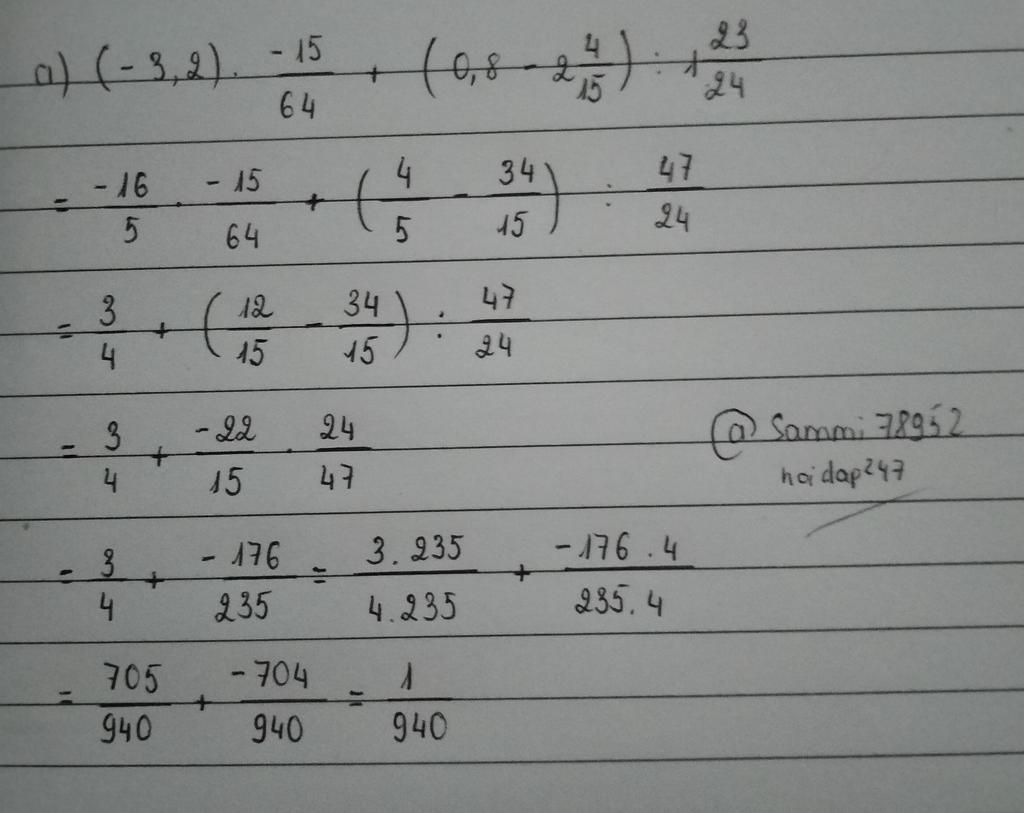 a) (-3,2) . -15/64 + (0,8 - 2 4/15) : 1 23/24
= -16/5 . -15/64 + (4/5 - 34/15) : 47/24
= 3/4 + (12/15 - 34/15) : 47/24
= 3/4 + -22/15 . 24/47
@Sammi78952
hoidap247
= 3/4 + -176/235 = 3.235/4.235 + -176.4/235.4
= 705/940 + -704/940 = 1/940